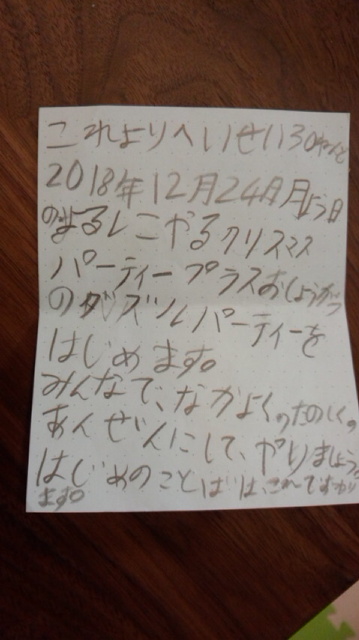 これよりへいせい30ねんと
2018年12月24日月よう日
のよるしにやるクリスマス
パーティープラスおしょうがつ
のダブルパーティーを
はじめます。
みんなで、なかよく。たのしく。
あんぜんにして、やりましょう。
はじめのことばは、これで
ます。